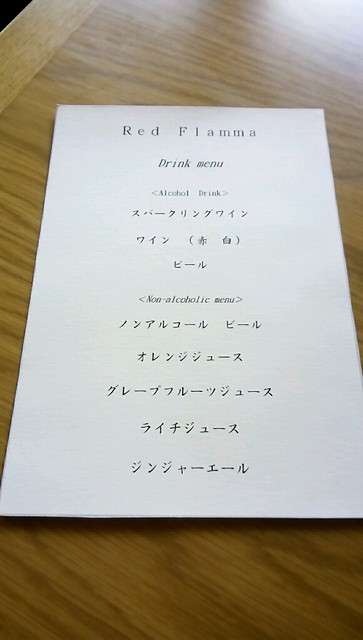 Red Flamma
Drink menu
<Alcohol Drink>
スパークリングワイン
ワイン （赤 白）
ビール
<Non-alcoholic menu>
ノンアルコール ビール
オレンジジュース
グレープフルーツジュース
ライチジュース
ジンジャーエール